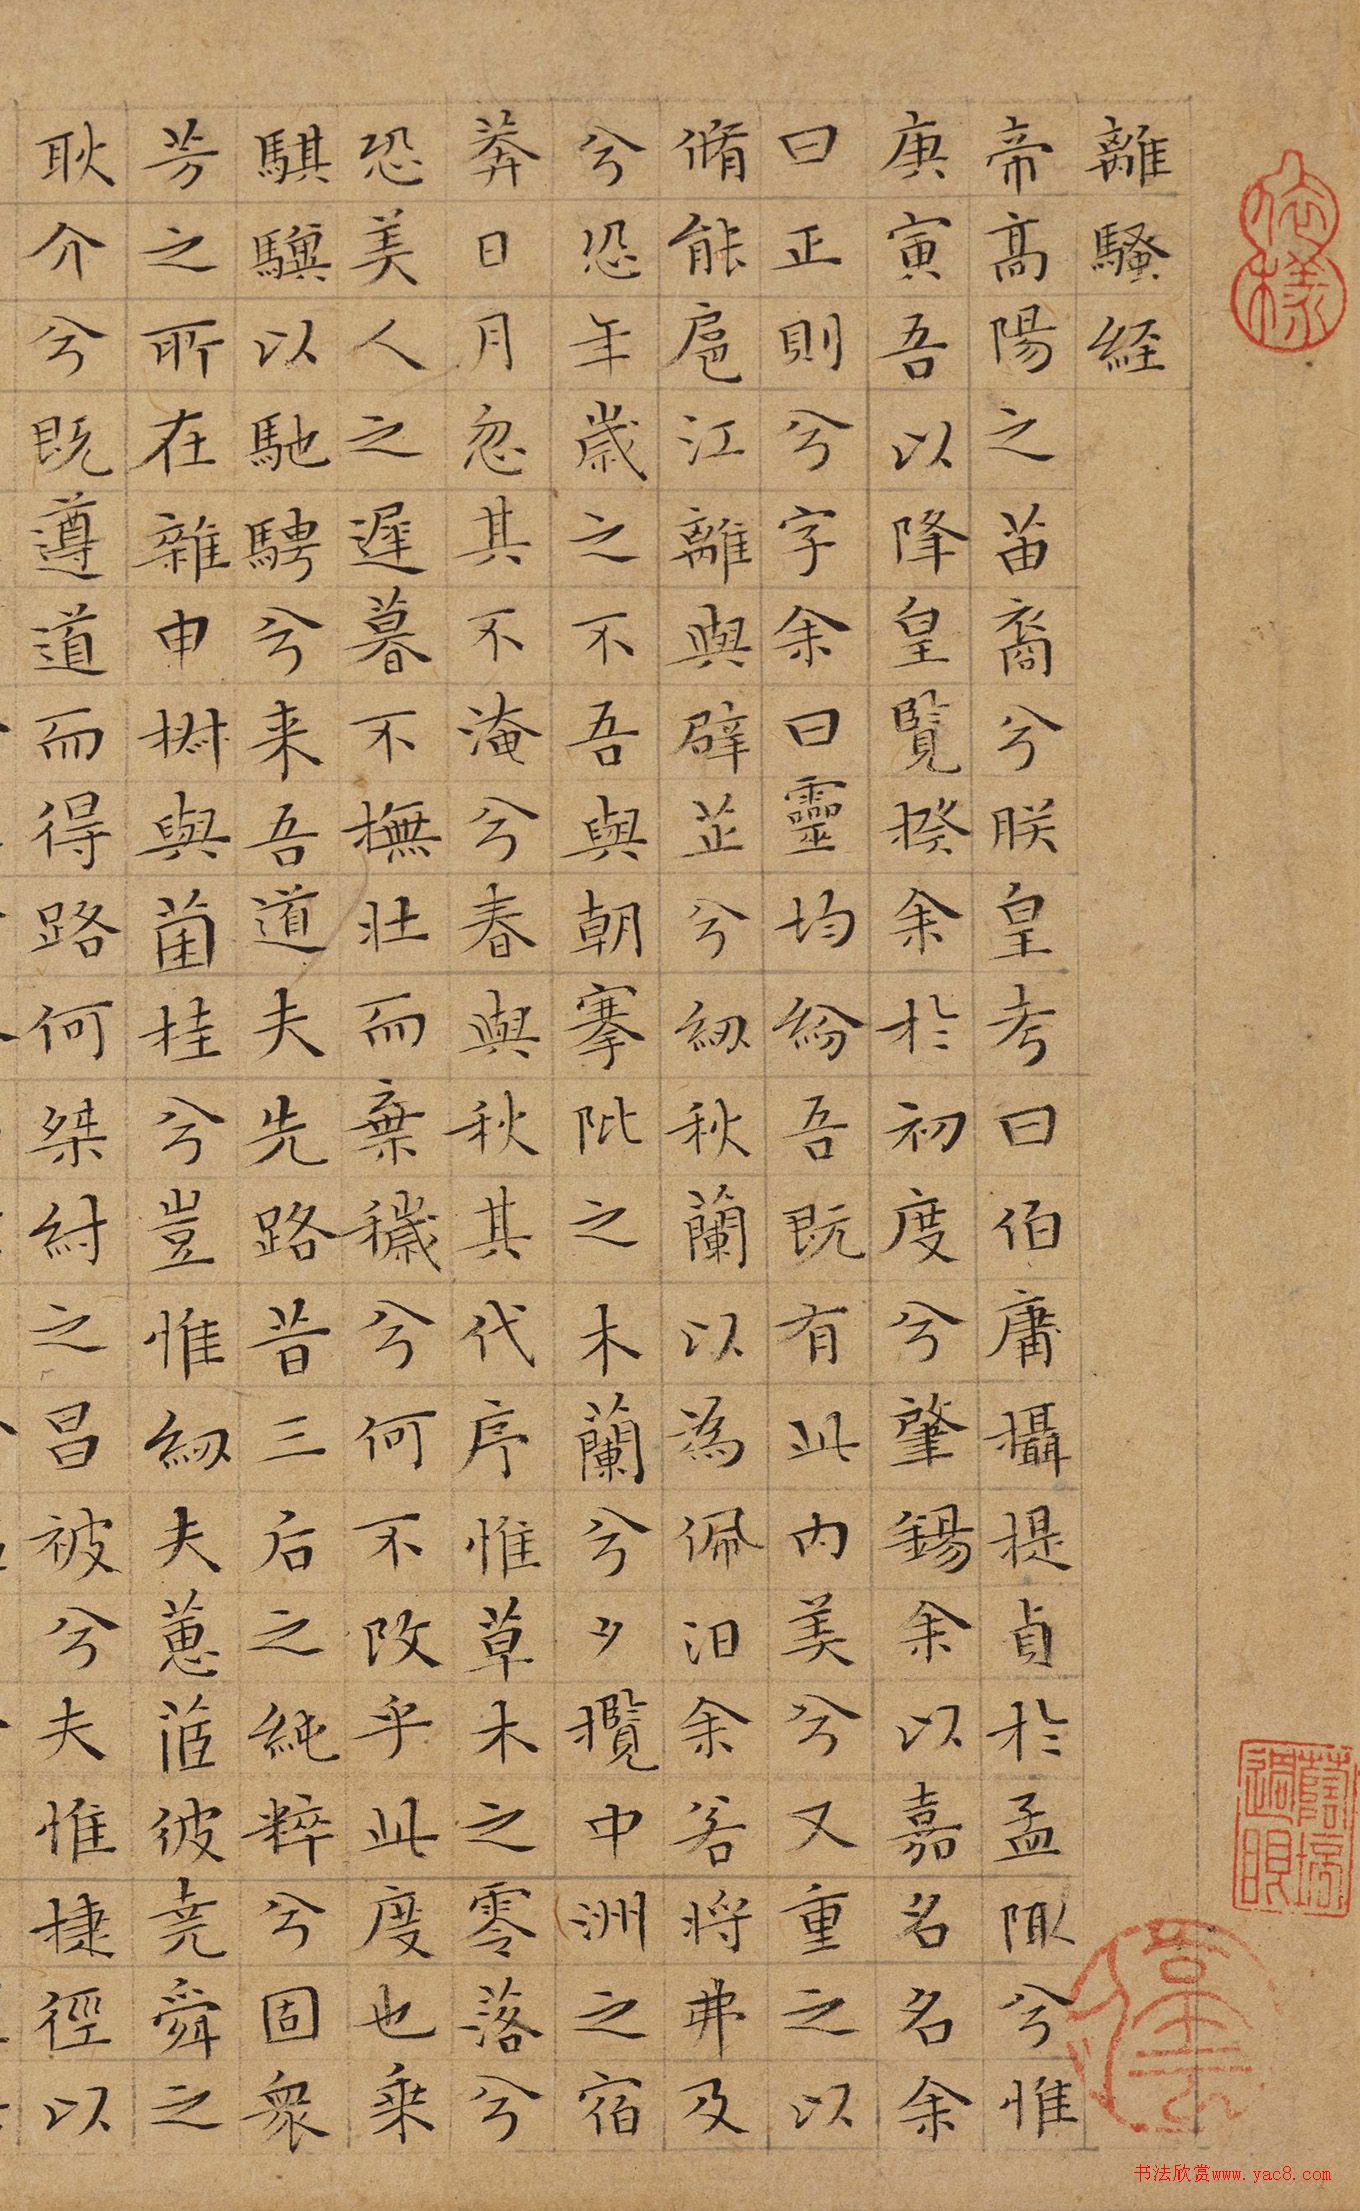 離騷經
帝高陽之苗裔兮朕皇考曰伯庸攝提貞於孟陬兮惟
庚寅吾以降皇覽揆余於初度兮肇錫余以嘉名名余
曰正則兮字余曰靈均紛吾既有此內美兮又重之以
脩能扈江離與辟芷兮紉秋蘭以為佩汩余若將弗及
兮恐年歲之不吾與朝搴阰之木蘭兮夕攬中洲之宿
莽日月忽其不淹兮春與秋其代序惟草木之零落兮
恐美人之遲暮不撫壯而棄穢兮何不改乎此度也乘
騏驥以馳騁兮来吾道夫先路昔三后之純粹兮固衆
芳之所在雜申椒與菌桂兮豈惟紉夫蕙茝彼堯舜之
耿介兮既遵道而得路何桀紂之昌被兮夫惟捷徑以
书法欣赏www.yac8.com